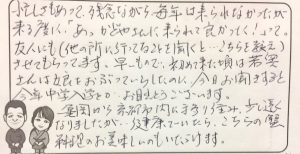 忙しさもあって、残念ながら毎年は来られなかったが
来る度に、「あっ、かめやさんに来られて良かった!」って。
友人にも(他の所に行ってることを聞くと…こちらを教え)
させてもらってます。早いもので、初めて来た頃は若女将
さんは赤をおぶっていらしたのに、今日お聞きすると
今年中学入学とか。お目でとうございます。
豊岡から京都市内に引き移り住み、少し遠く
なりましたが、健康でいたら、こちらの蟹
料理のお美味しいのもいただけます